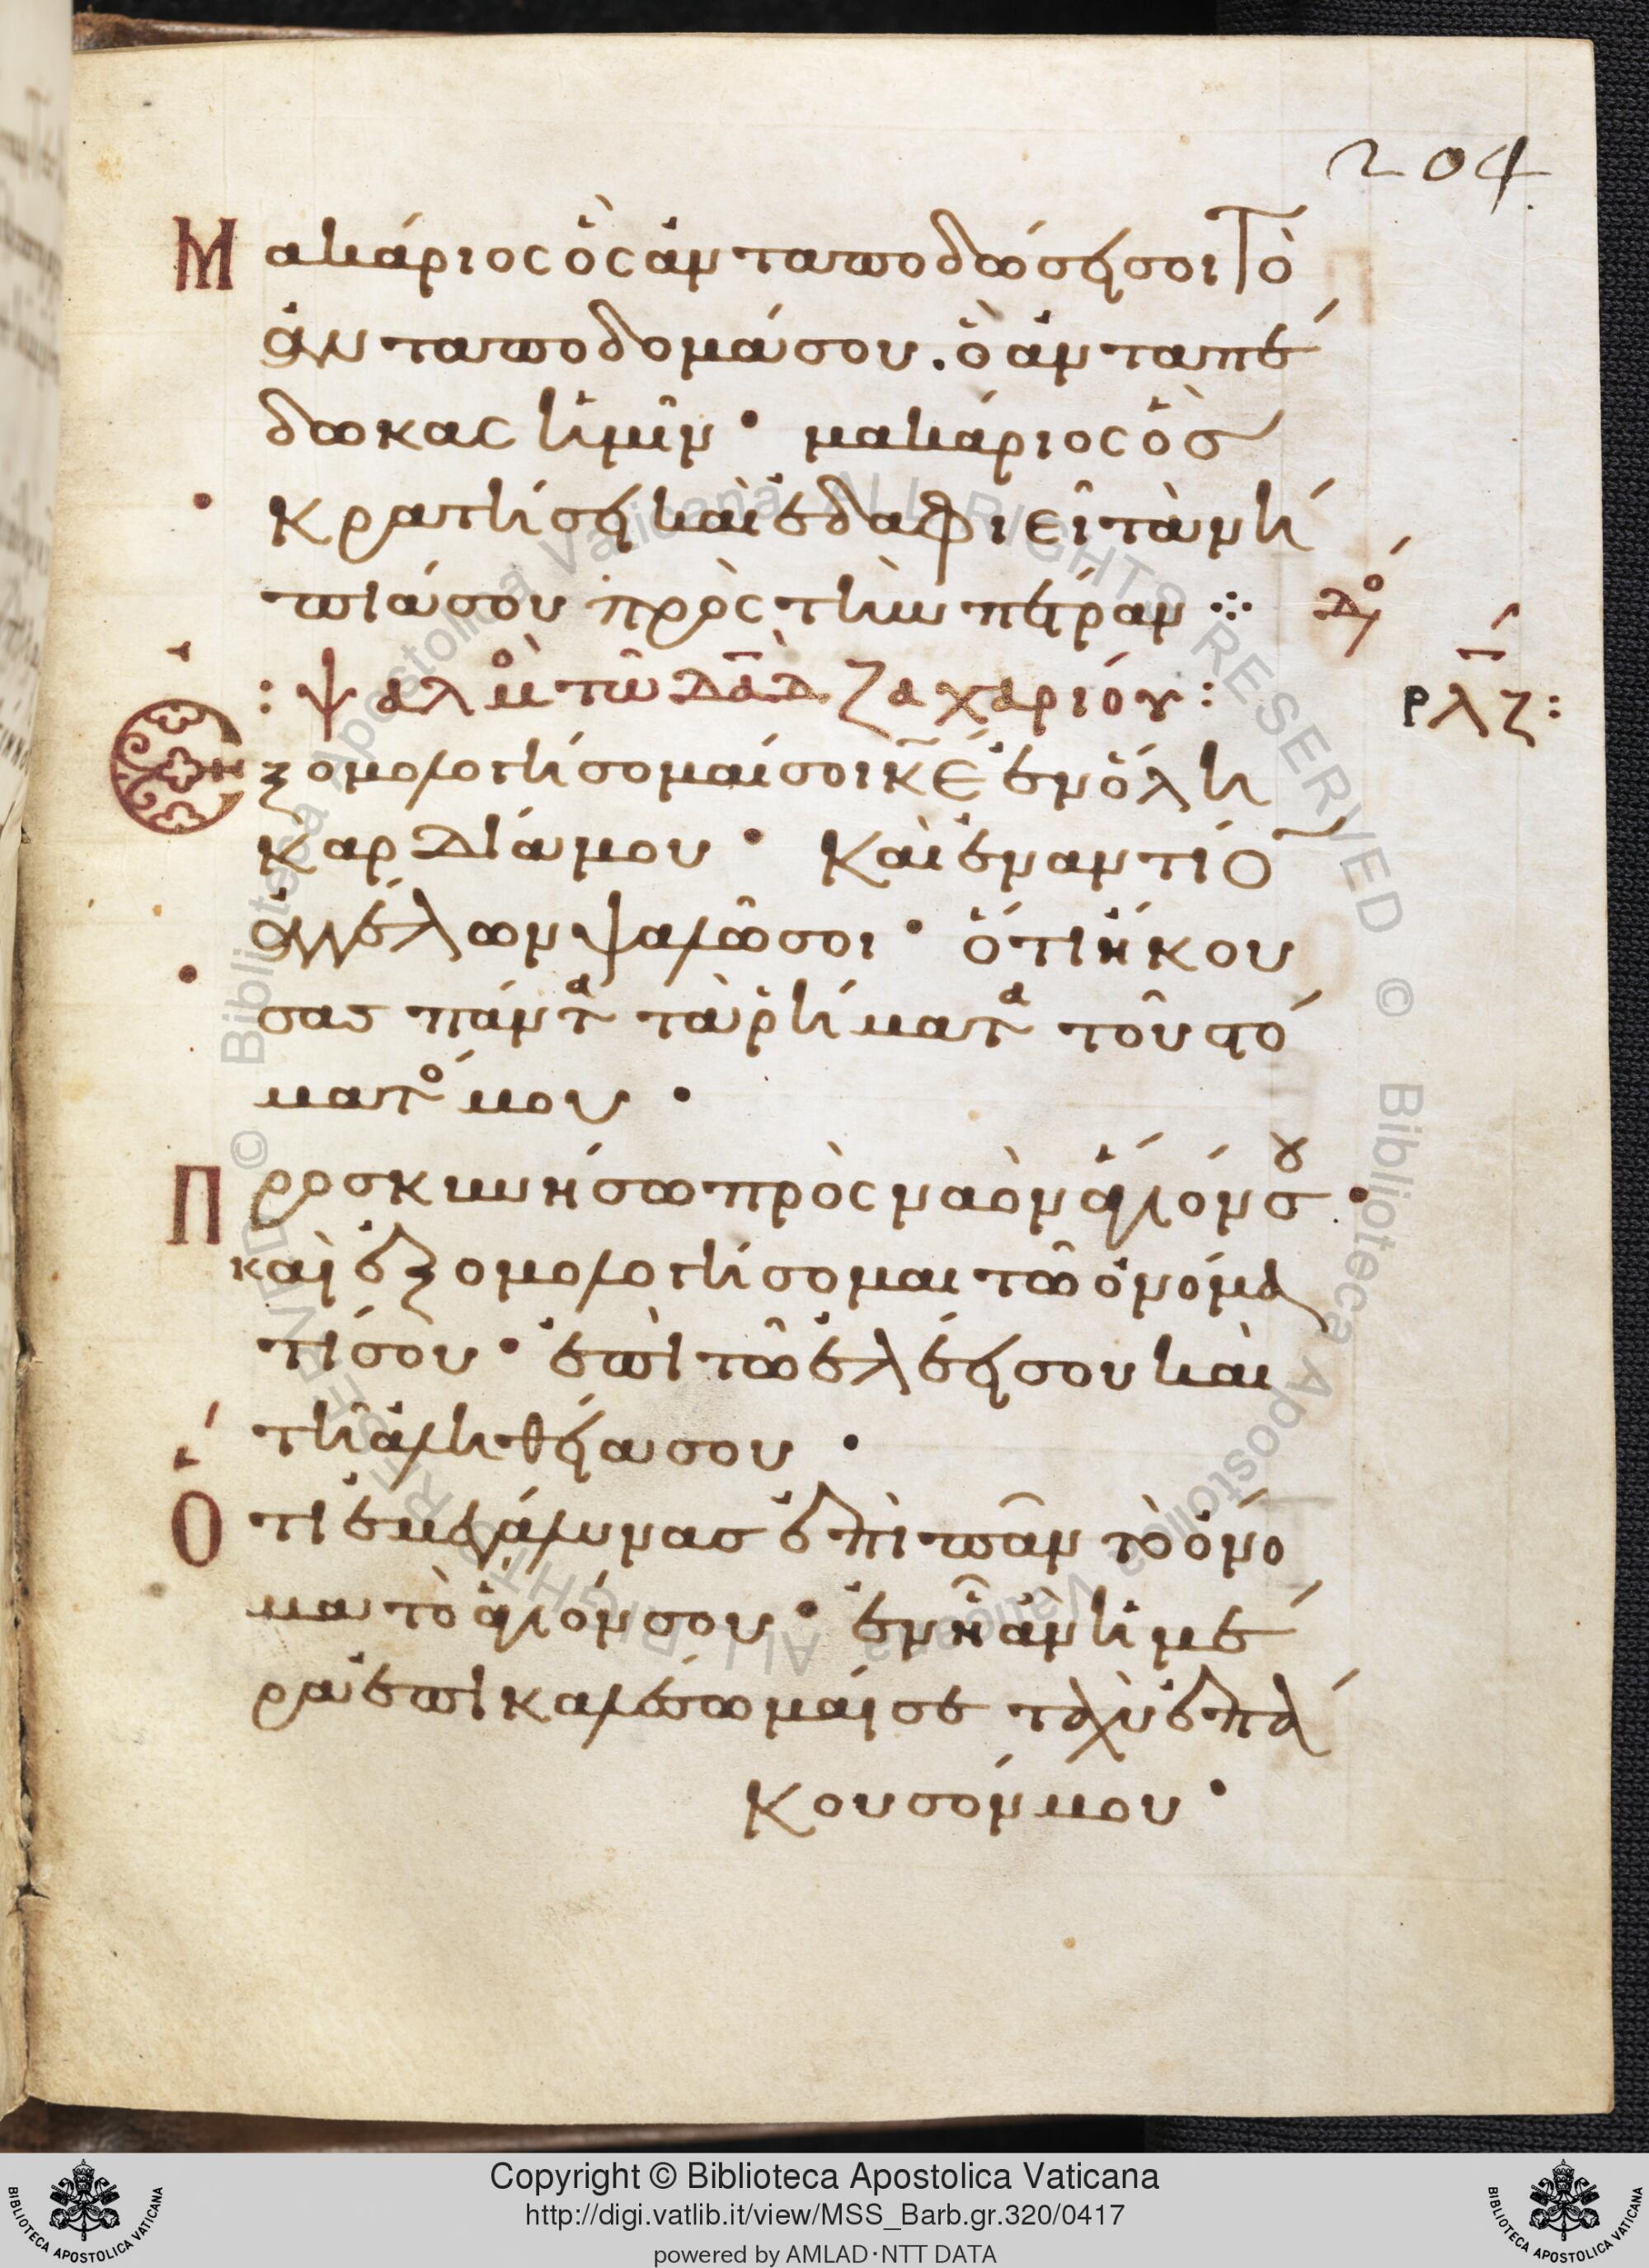 204
Μακάριος ὃς ἀνταποδώσει σοι τὸ
ἀνταποδομά σου. ὃ ἀνταπέ
δωκας ἡμῖν· μακάριος ὃσ
κρατήσει καὶ ἐδαφιεῖ τὰ νή
πιά σου πρὸς τὴν πέτραν ⁘ Δό
: ψαλμὸ τῶ δᾱδ ζαχαρίου: ρλζ:
Ἐξομολογήσομαί σοι κ̄ε ἐν ὅλη
καρδία μου· Καὶ ἐναντίο
ἀγγέλων ψαλῶ σοι· ὅτι ἤκου
σας πάντα τὰ ῥήματα τοῦ στό
ματό μου·
Προσκυνήσω πρὸς ναὸν ἅγιόν σου·
καὶ ἐξομολογήσομαι τῶ ὀνόμα
τί σου· ἐπὶ τῶ ἐλέει σου καὶ
τῆ ἀληθεία σου·
Ὅτι ἐμεγάλυνασ ἐπὶ πᾶν τὸ ὄνο
μα τὸ ἅγιόν σου· ἐν ἧ ἂν ἡμέ
ρα ἐπικαλέσωμαί σε ταχὺ ἐπά
κουσόν μου·
Copyright © Biblioteca Apostolica Vaticana
http://digi.vatlib.it/view/MSS_Barb.gr.320/0417
powered by AMLAD·NTT DATA
BIBLIOTECA APOSTOLICA VATICANA
BIBLIOTECA APOSTOLICA VATICANA
© Biblioteca Apostolica Vaticana ALL RIGHTS RESERVED © Biblioteca Apostolica Vaticana ALL RIGHTS RESERVED